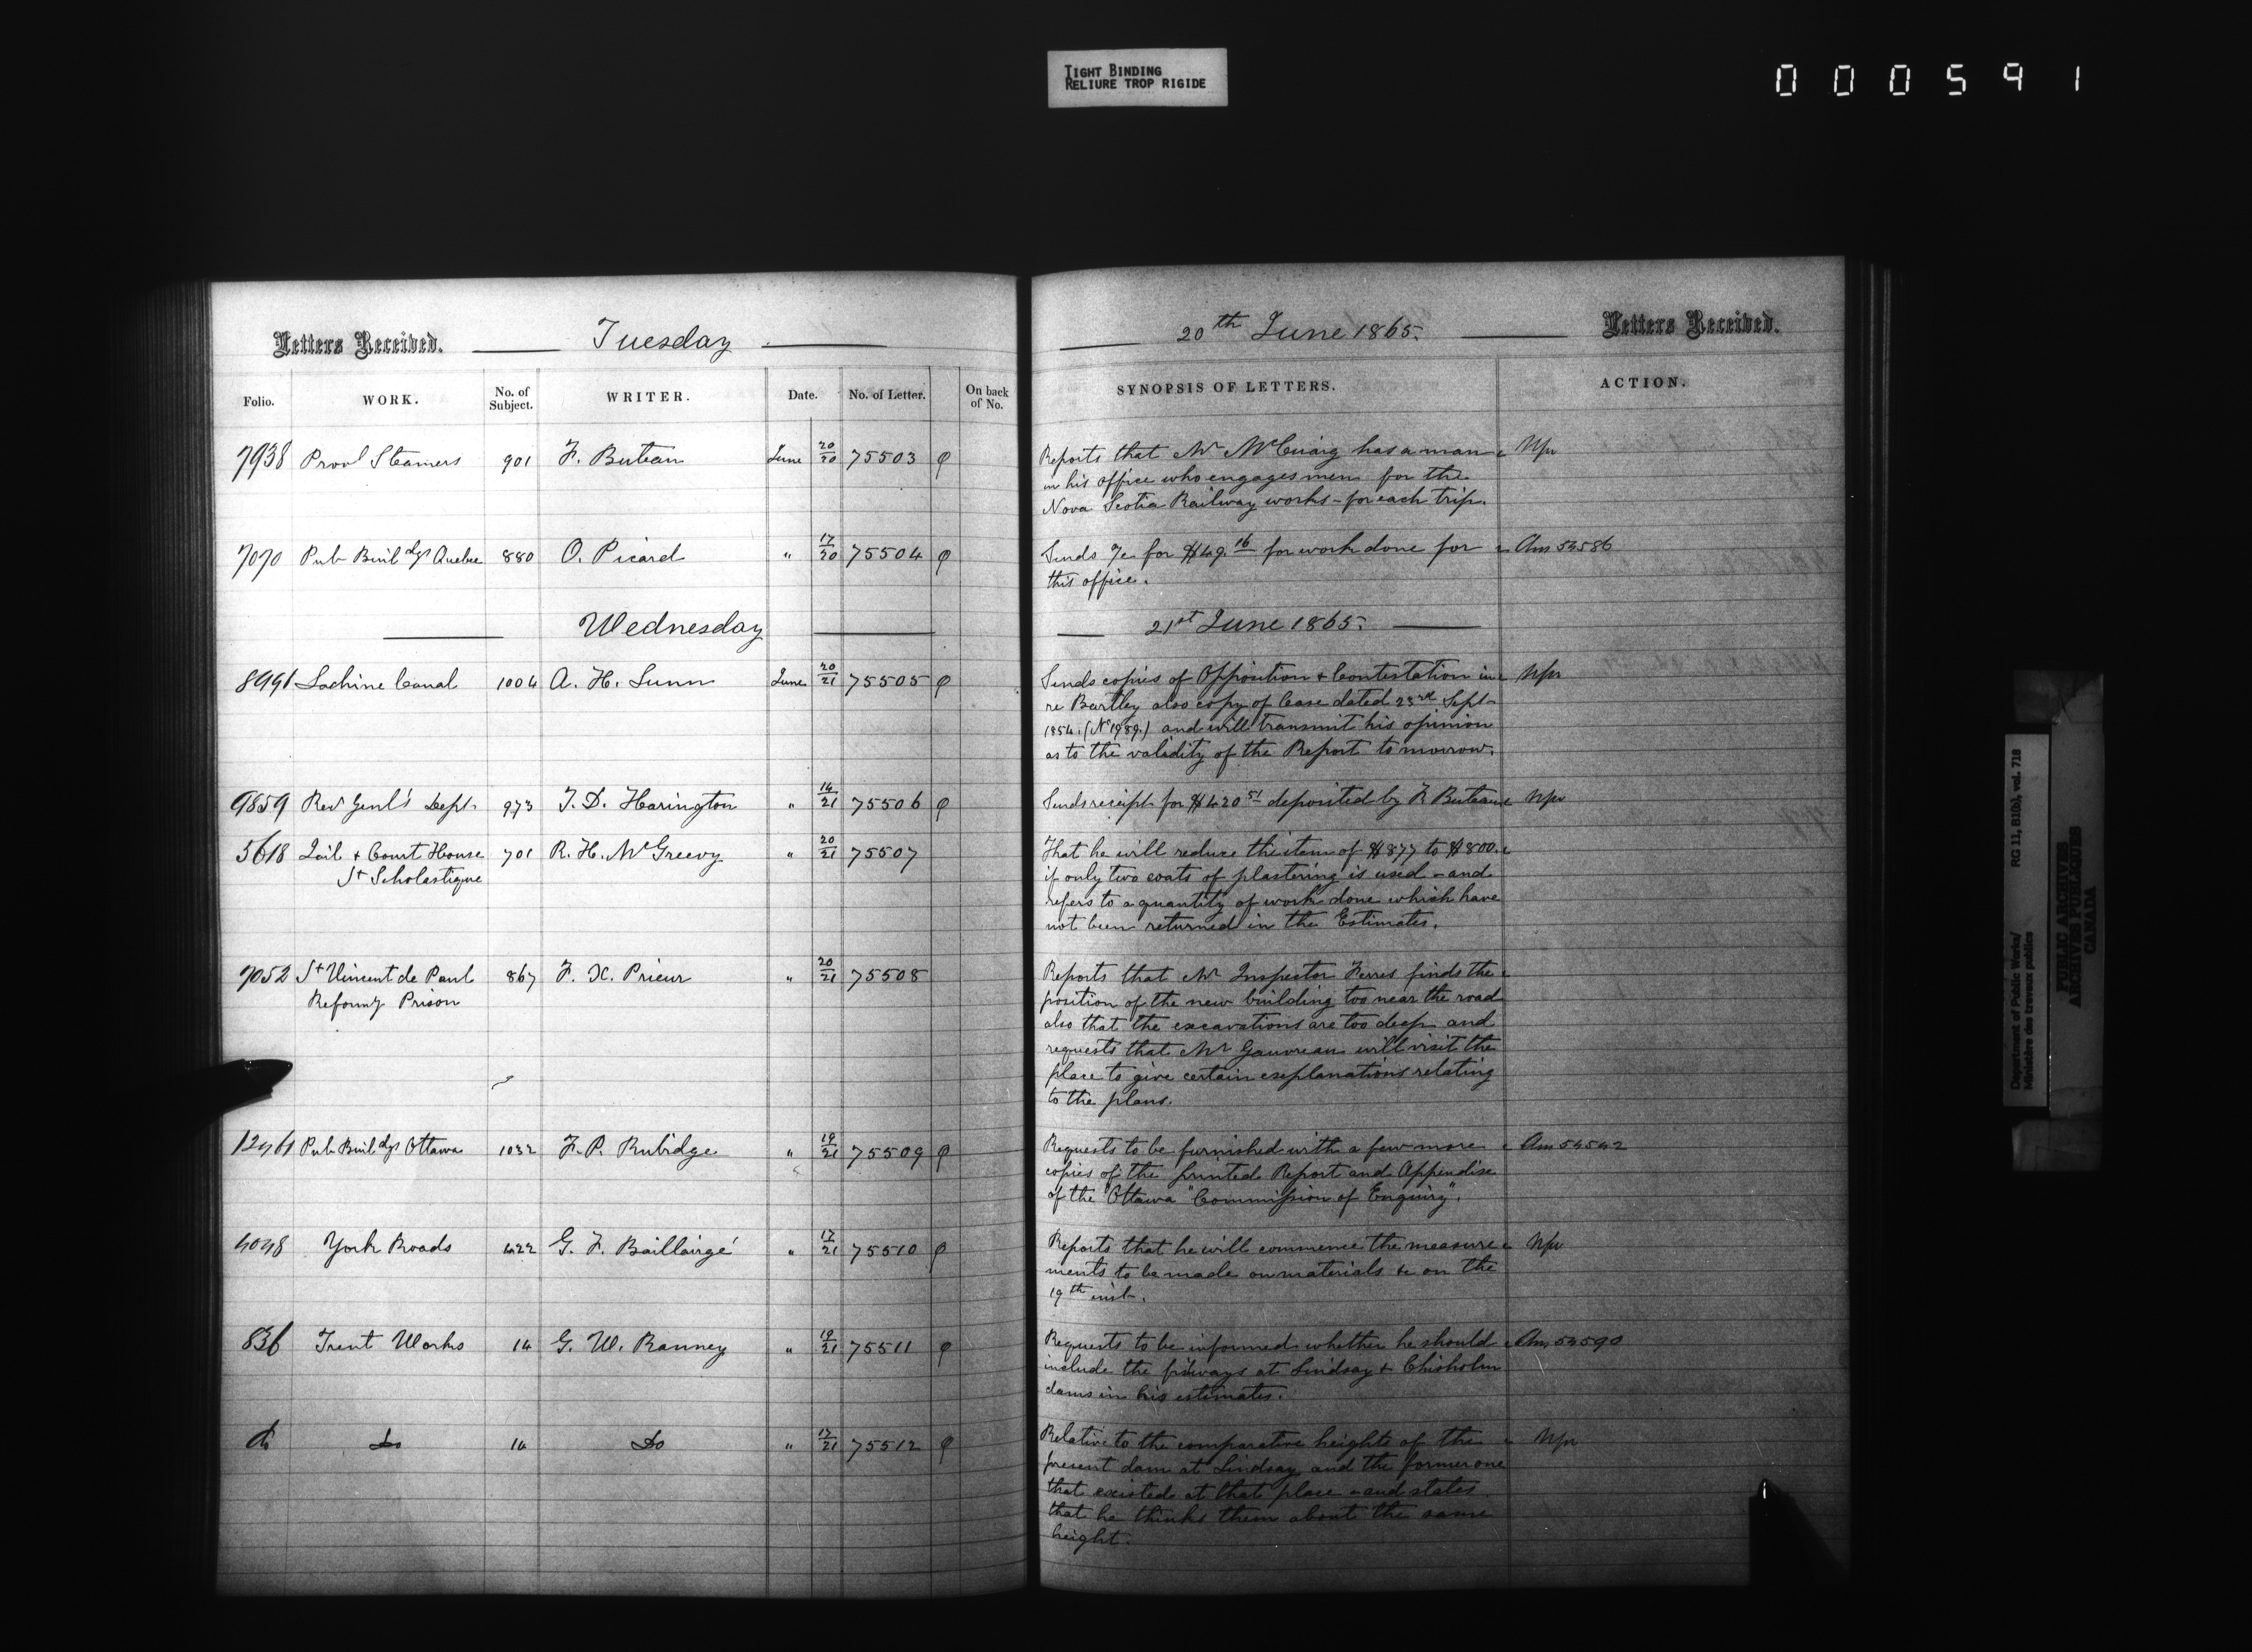 TIGHT BINDING
RELIURE TROP RIGIDE
000591
Letters Received. Tuesday 20th June 1865. Letters Received.
Folio. WORK. No. of Subject. WRITER. Date. No. of Letter. On back of No. SYNOPSIS OF LETTERS. ACTION.
7938 Provl Steamers 901 F. Buteau June 20/20 75503 Reports that Mr McCuaig has a man
in his office who engages men for the
Nova Scotia Railway works - for each trip.
7070 Pub Buildgs Quebec 880 O. Picard " 17/20 75504 Sends a/c for $49.16 for work done for Ans 54586
this office.
Wednesday 21st June 1865.
8991 Lachine Canal 1004 A. H. Lunn June 20/21 75505 Sends copies of Opposition & Contestation in
re Bartley also copy of Case dated 23rd Sept
1854. (No 1989.) and will transmit his opinion
as to the validity of the Report tomorrow.
9859 Recr Genl's Dept 973 T. D. Harington " 14/21 75506 Sends receipt for $420 51 deposited by F. Buteau
5618 Jail & Court House 701 R. H. McGreevy " 20/21 75507 That he will reduce the item of $877 to $800.
St Scholastique if only two coats of plastering is used - and
refers to a quantity of work done which have
not been returned in the Estimates.
7052 St Vincent de Paul 867 F. X. Prieur " 20/21 75508 Reports that Mr Inspector Ferres finds the
Reformy Prison position of the new building too near the road
also that the excavations are too deep and
requests that Mr Gauvreau will visit the
place to give certain explanations relating
to the plans.
Pub Buildgs Ottawa 1032 F. P. Rubidge " 19/21 75509 Requests to be furnished with a few more Ans 54542
copies of the printed Report and Appendix
of the "Ottawa "Commission of Enquiry".
York Roads 422 G. F. Baillairgé " 17/21 75510 Reports that he will commence the measure
ments to be made on materials &c on the
19th inst.
836 Trent Works 14 G. W. Ranney " 19/21 75511 Requests to be informed whether he should Ans 54590
include the fishways at Lindsay & Chisholm
dams in his estimates.
do Do 14 Do " 17/21 75512 Relative to the comparative heights of the
present dam at Lindsay and the former one
that existed at that place - and states
that he thinks them about the same
height.
Department of Public Works/
Ministère des travaux publics
RG 11, B1(b), vol. 718
PUBLIC ARCHIVES
ARCHIVES PUBLIQUES
CANADA